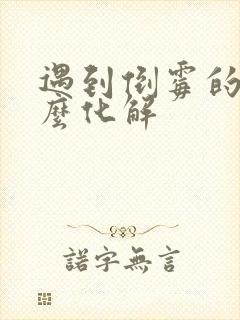 遇到倒霉的
麼化解
諾字無言